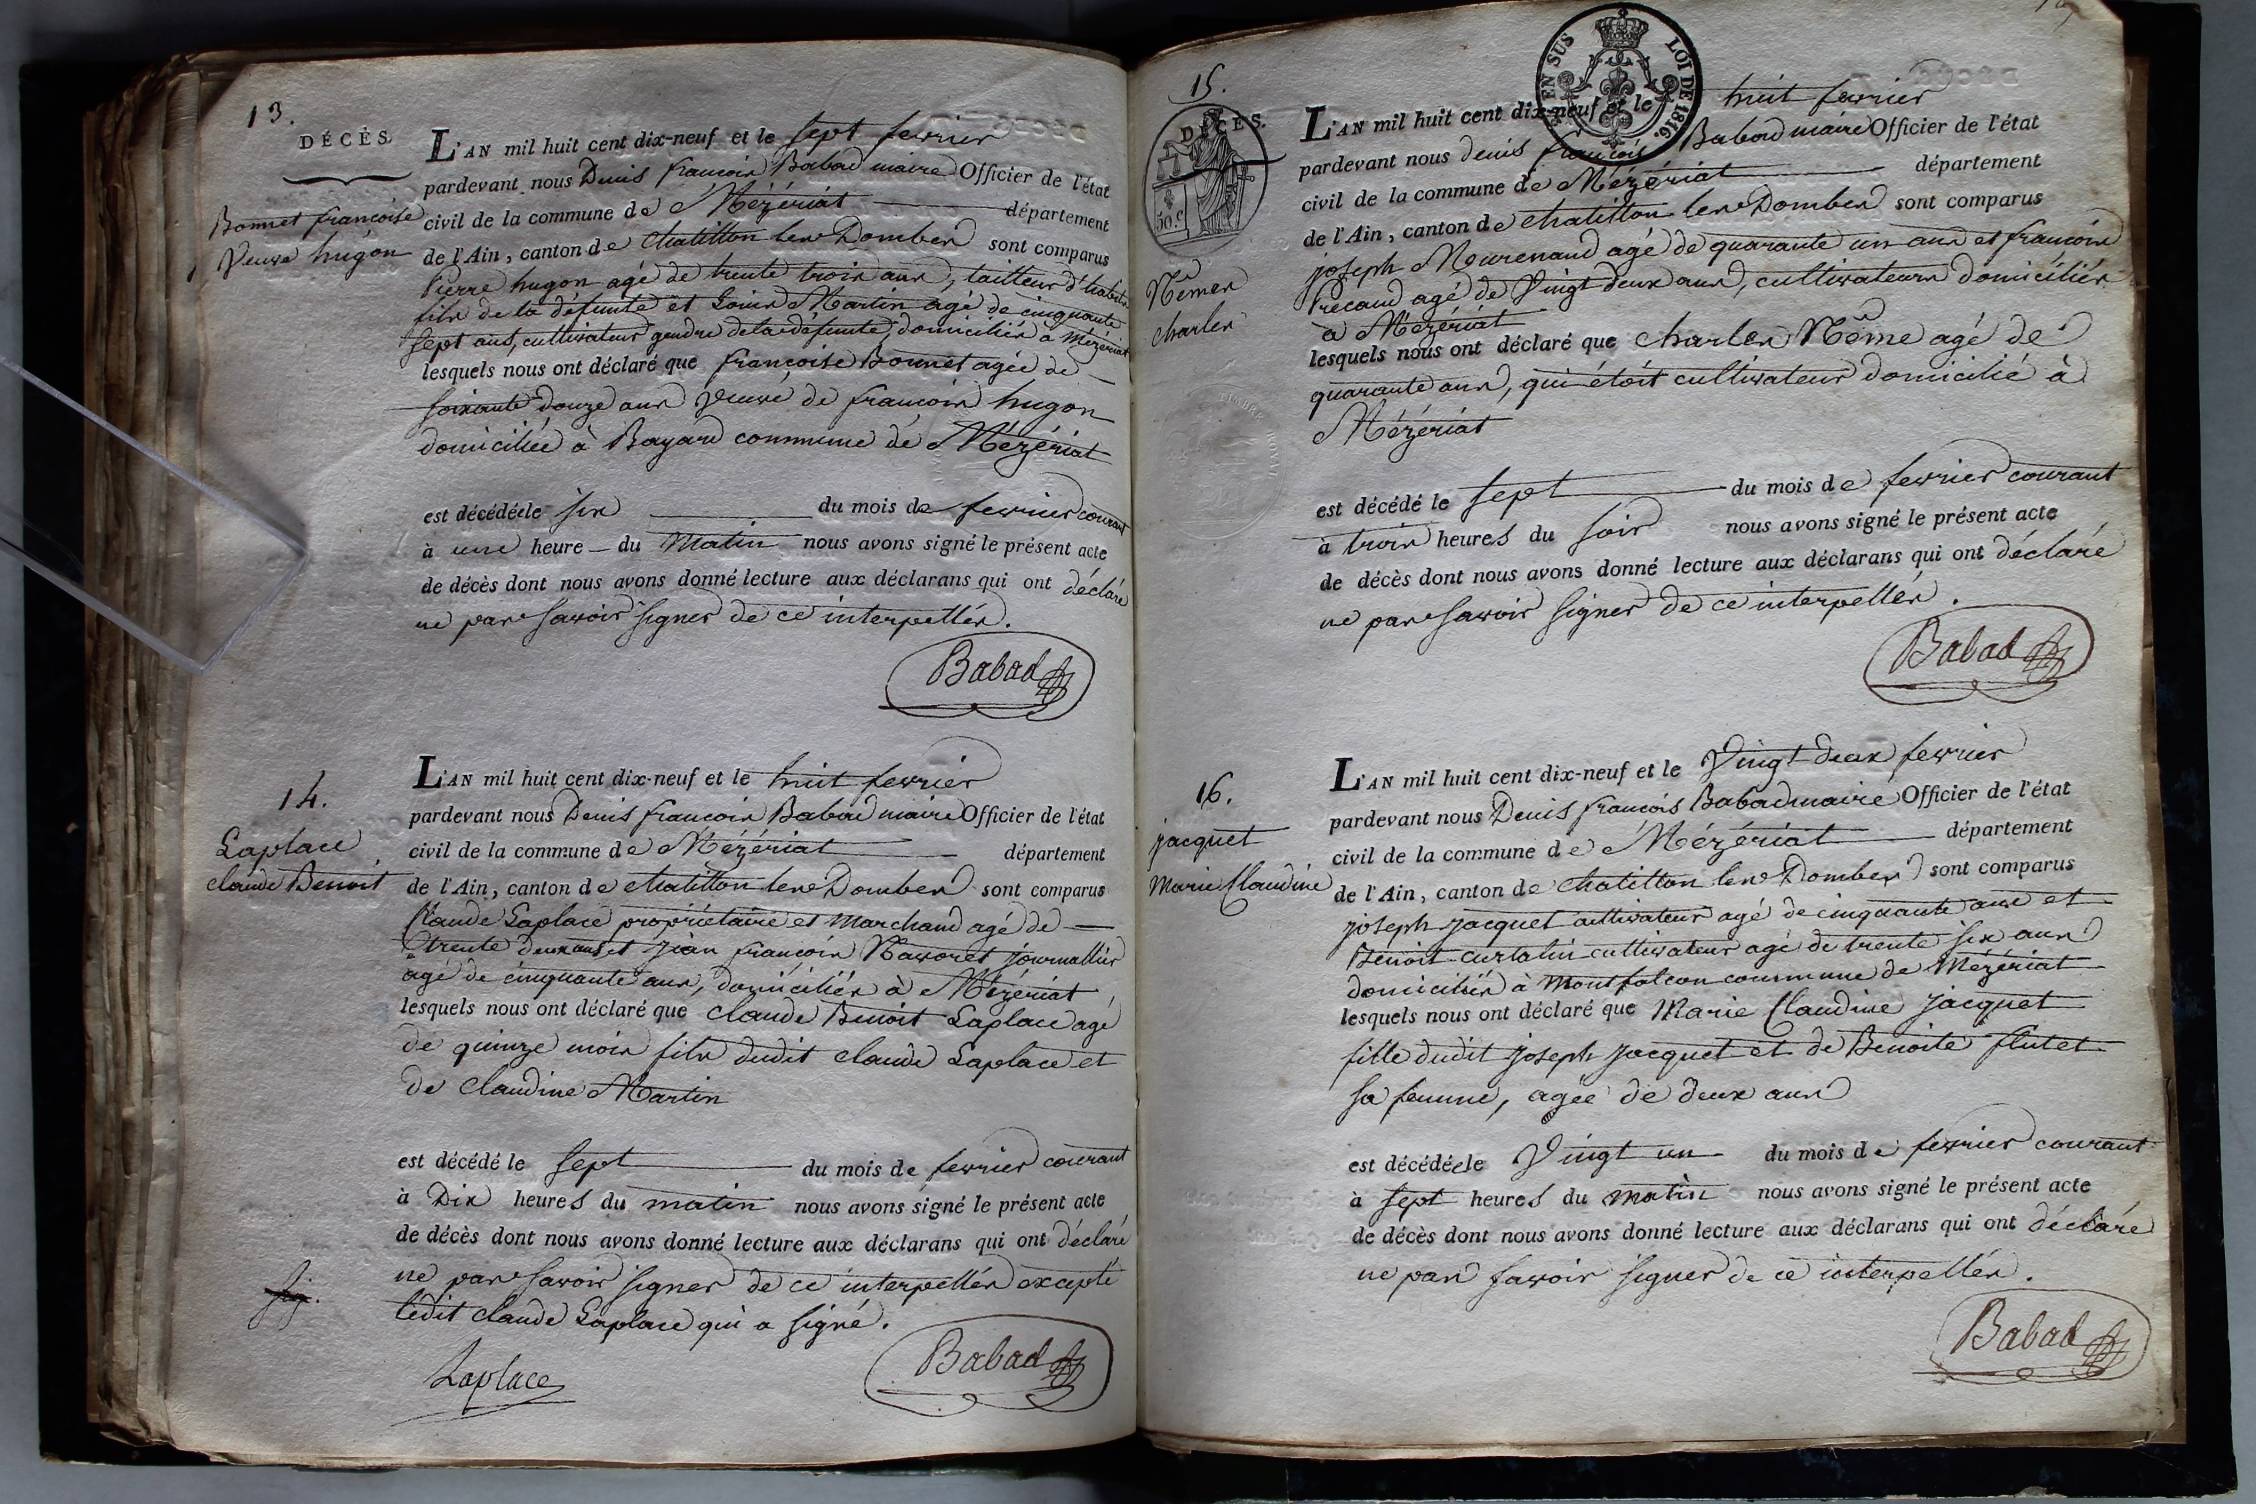 13.
DÉCÈS.
Bonnet françoise
Veuve hugon
L'AN mil huit cent dix-neuf et le sept fevrier
pardevant nous Denis françois Babad maire Officier de l'état
civil de la commune de Mézériat département
de l'Ain, canton de chatillon les Dombes sont comparus
Pierre hugon agé de trente trois ans, tailleur d'habits
fils de la défunte et Louis Martin agé de cinquante
sept ans, cultivateur gendre de la défunte, domiciliés à Mézériat
lesquels nous ont déclaré que françoise Bonnet agée de
soixante douze ans Veuve de françois hugon
domiciliée à Bayard commune de Mézériat
est décédée le six du mois de fevrier courant
à une heure du matin nous avons signé le présent acte
de décès dont nous avons donné lecture aux déclarans qui ont déclaré
ne pas savoir signer de ce interpellés.
Babad
14.
Laplace
claude Benoit
L'AN mil huit cent dix-neuf et le huit fevrier
pardevant nous Denis françois Babad maire Officier de l'état
civil de la commune de Mézériat département
de l'Ain, canton de chatillon les Dombes sont comparus
Claude Laplace propriétaire et marchand agé de
trente deux ans et jean françois Navoret journallier
agé de cinquante ans, domiciliés à Mézériat
lesquels nous ont déclaré que claude Benoit Laplace agé
de quinze mois fils dudit claude Laplace et
de claudine Martin
est décédé le sept du mois de fevrier courant
à Dix heures du matin nous avons signé le présent acte
de décès dont nous avons donné lecture aux déclarans qui ont déclaré
ne pas savoir signer de ce interpellés excepté
ledit claude Laplace qui a signé.
Laplace
Babad
15.
EN SUS
LOI DE 1816.
DÉCÈS.
50 c
TIMBRE ROYAL
Nême
charles
L'AN mil huit cent dix-neuf et le huit fevrier
pardevant nous denis françois Babad maire Officier de l'état
civil de la commune de Mézériat département
de l'Ain, canton de chatillon les Dombes sont comparus
joseph Mourenaud agé de quarante un ans et françois
Precaud agé de Vingt deux ans, cultivateurs domiciliés
à Mézériat
lesquels nous ont déclaré que charles Nême agé de
quarante ans, qui étoit cultivateur domicilié à
Mézériat
est décédé le sept du mois de fevrier courant
à trois heures du soir nous avons signé le présent acte
de décès dont nous avons donné lecture aux déclarans qui ont déclaré
ne pas savoir signer de ce interpellés.
Babad
16.
jacquet
Marie Claudine
L'AN mil huit cent dix-neuf et le Vingt deux fevrier
pardevant nous Denis françois Babad maire Officier de l'état
civil de la commune de Mézériat département
de l'Ain, canton de chatillon les Dombes sont comparus
joseph jacquet cultivateur agé de cinquante ans et
Benoit curtalin cultivateur agé de trente six ans
domiciliés à Montfalcon commune de Mézériat
lesquels nous ont déclaré que Marie Claudine jacquet
fille dudit joseph jacquet et de Benoite flutet
sa femme, agée de deux ans
est décédée le Vingt un du mois de fevrier courant
à sept heures du matin nous avons signé le présent acte
de décès dont nous avons donné lecture aux déclarans qui ont déclaré
ne pas savoir signer de ce interpellés.
Babad